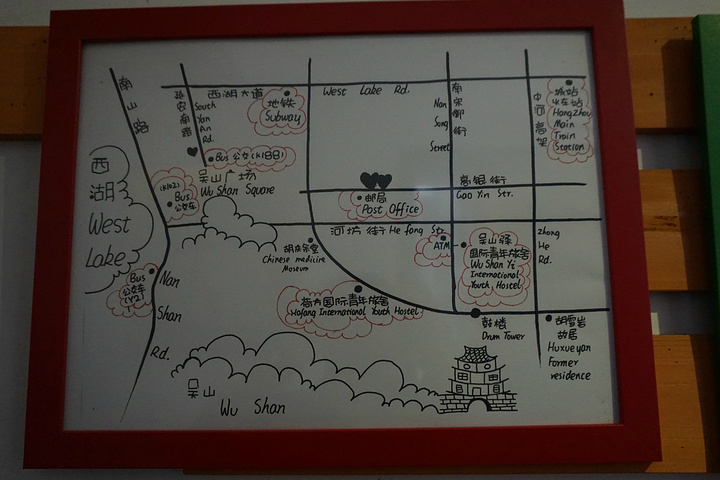 南山路
延安南路
South
Yan
An
Rd.
西湖大道
地铁
Subway
West Lake Rd.
南宋御街
Nan
Song
Street
中河高架
城站
火车站
HangZhou
Main
Train
Station
Bus 公交(K188)
吴山广场
Wu Shan Square
西
湖
West
Lake
(K102)
Bus
公交车
邮局
Post Office
高银街
Gao Yin Str.
河坊街 He fang Str.
胡庆余堂
Chinese medicine
Museum
ATM
吴山驿
国际青年旅舍
Wu Shan Yi
International
Youth Hostel
Zhong
He
Rd.
Bus
公交车
(Y2)
Nan
Shan
Rd.
荷方国际青年旅舍
Hofang International Youth Hostel
鼓楼
Drum Tower
胡雪岩
故居
Huxueyan
Former
residence
吴山
Wu Shan